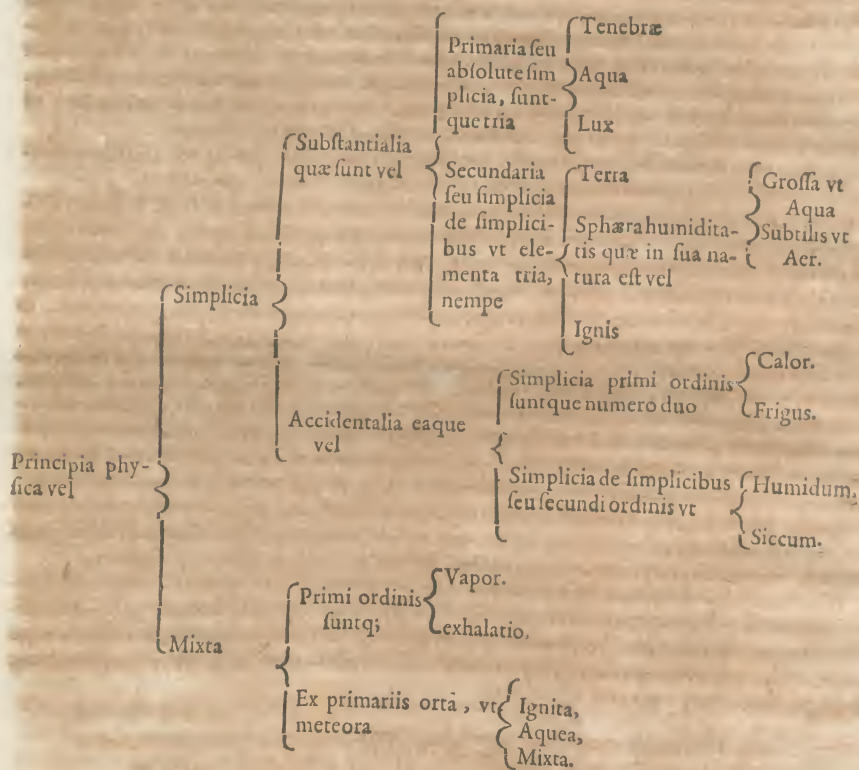 Principia phy-
ſica vel
Simplicia
Subſtantialia
quæ ſunt vel
Primaria ſeu
abſolute ſim
plicia, ſunt-
que tria
Tenebræ
Aqua
Lux
Secundaria
ſeu ſimplicia
de ſimplici-
bus vt ele-
menta tria,
nempe
Terra
Sphæra humidita-
tis quæ in ſua na-
tura eſt vel
Groſſa vt
Aqua
Subtilis vt
Aer.
Ignis
Accidentalia eaque
vel
Simplicia primi ordinis
ſuntque numero duo
Calor.
Frigus.
Simplicia de ſimplicibus
ſeu ſecundi ordinis vt
Humidum.
Siccum.
Mixta
Primi ordinis
ſuntq;
Vapor.
exhalatio.
Ex primariis orta, vt
meteora
Ignita,
Aquea,
Mixta.